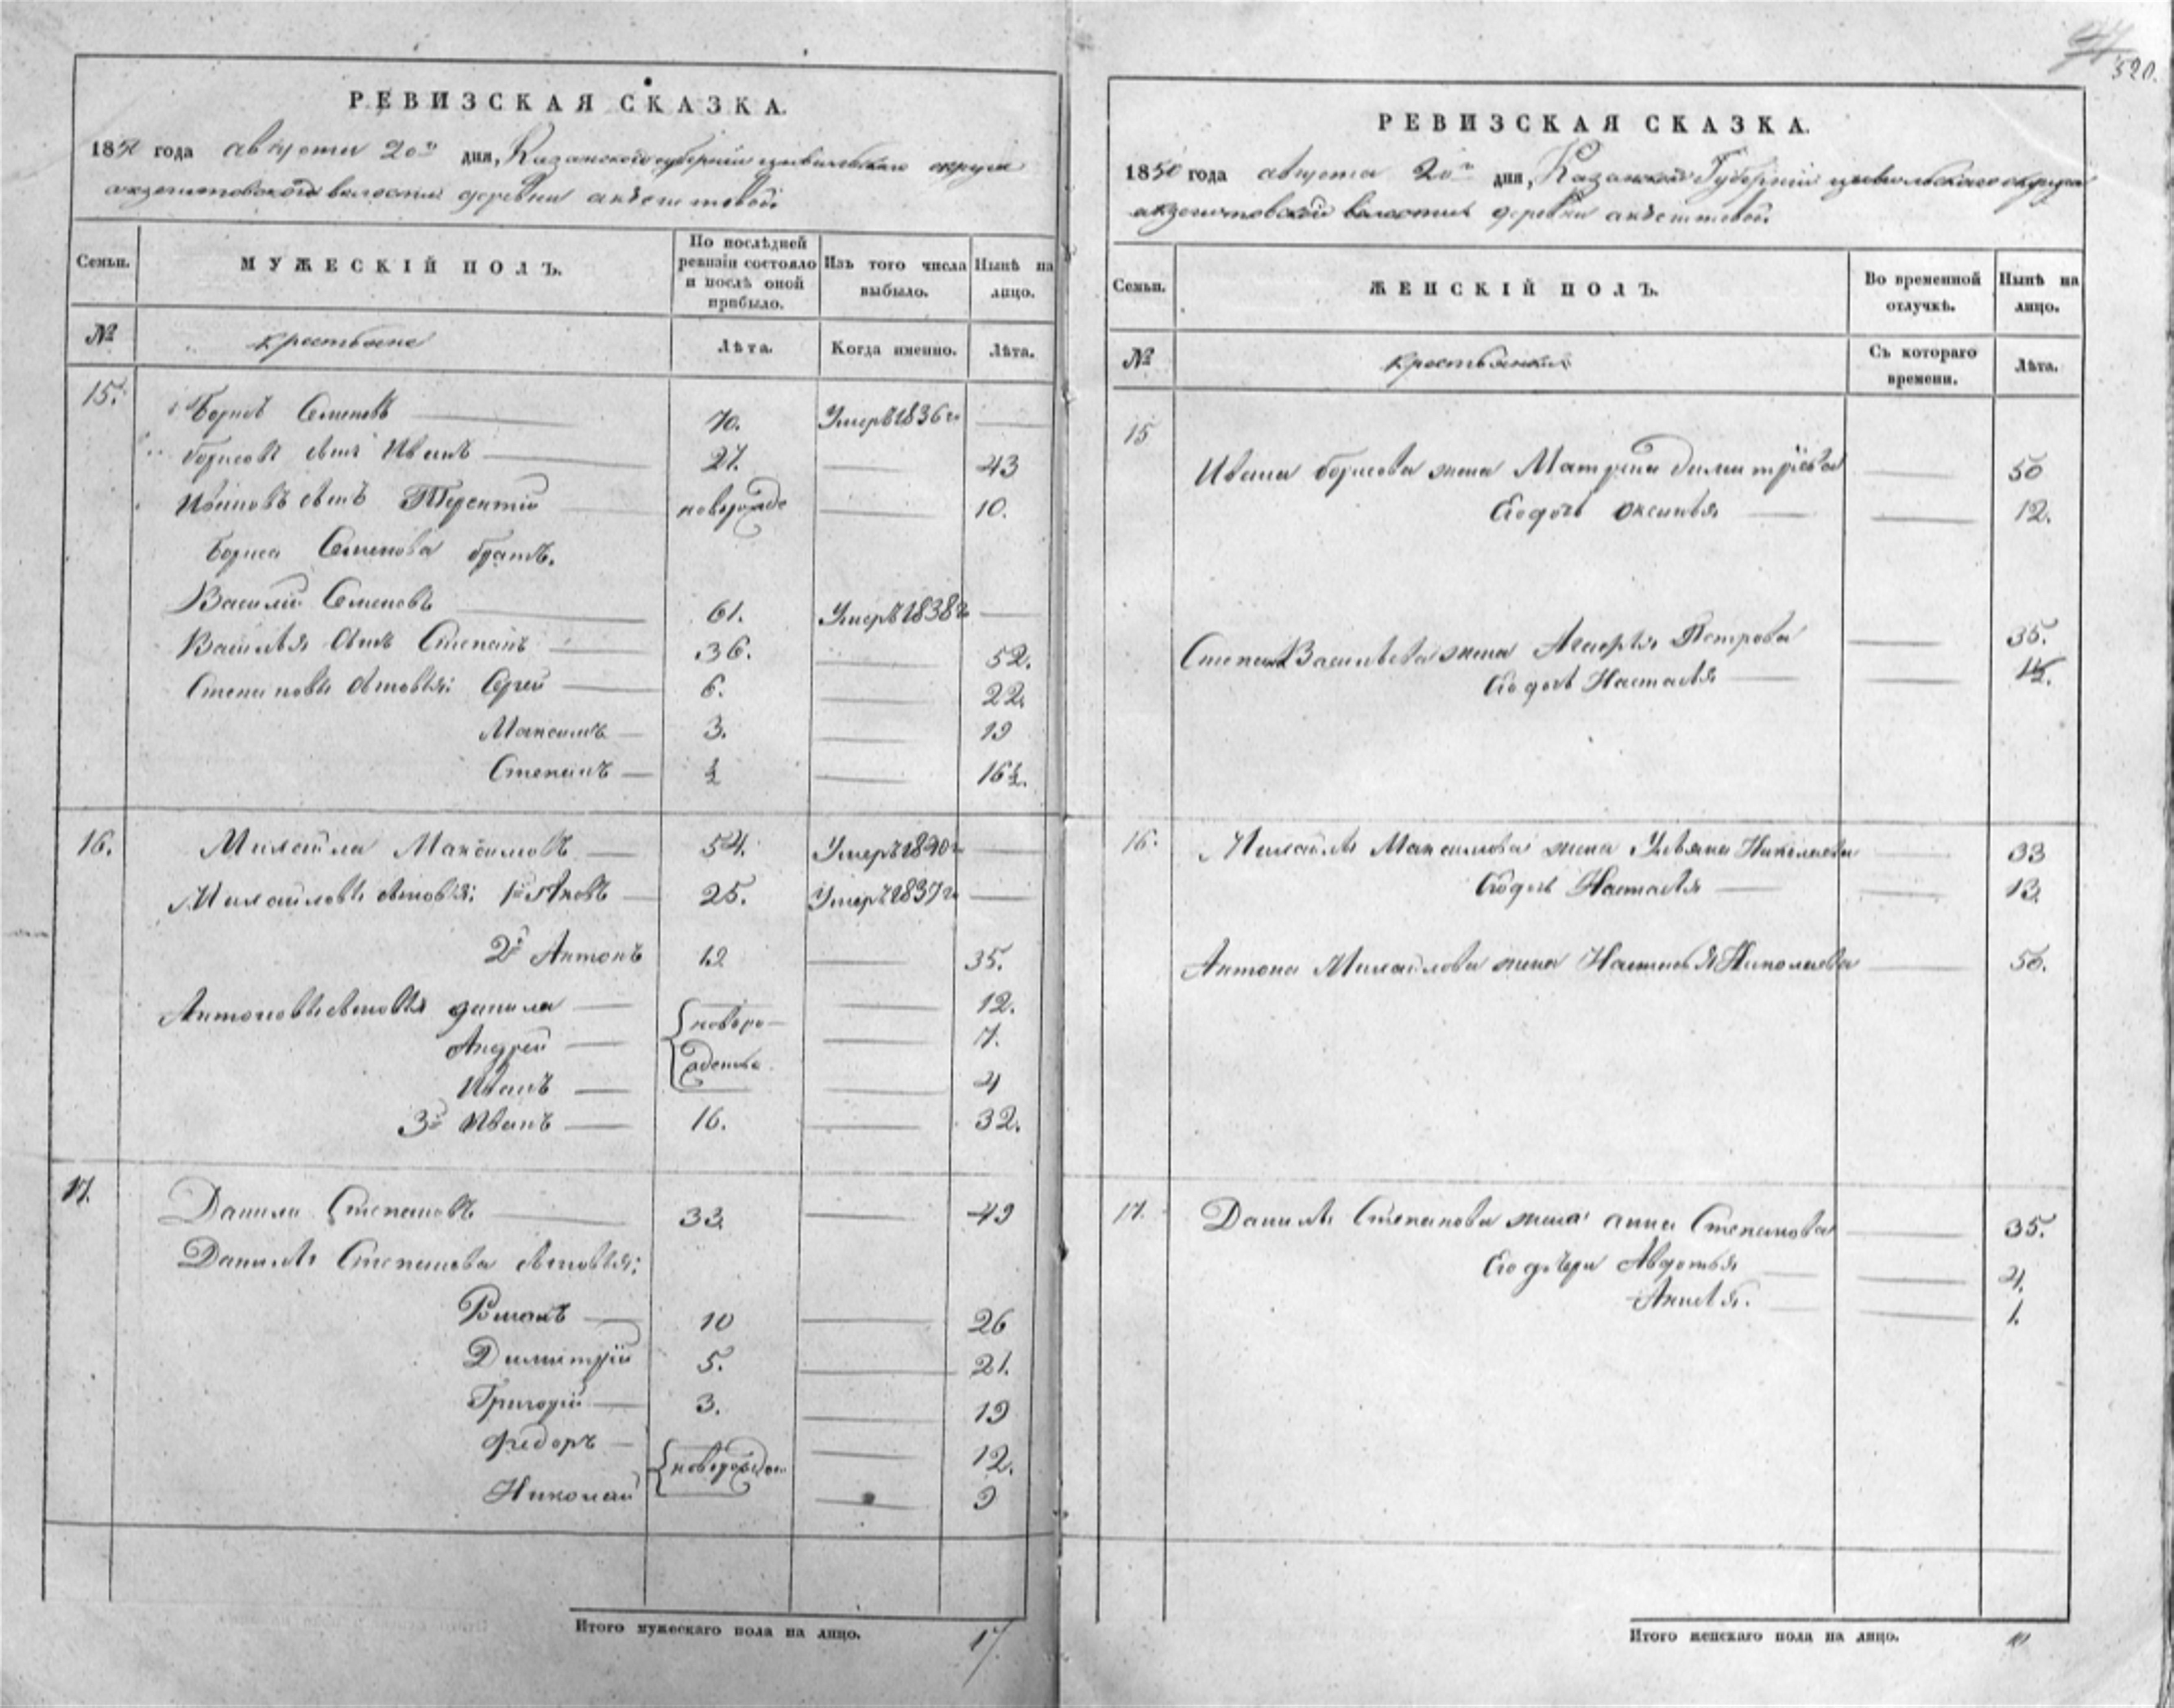 520.
РЕВИЗСКАЯ СКАЗКА.
1850 года августа 20го дня, Казанской губернии цивильскаго округа
акзегитовской волости деревни акзегитовой
Семьи. МУЖЕСКІЙ ПОЛЪ. По послѣдней ревизіи состояло и послѣ оной прибыло. Изъ того числа выбыло. Нынѣ на лицо.
№ крестьяне Лѣта. Когда именно. Лѣта.
15. Борисъ Семеновъ 70. Умеръ 1836 г.
Борисовъ сынъ Иванъ 27. 43
Ивановъ сынъ Терентій новорожде 10.
Бориса Семенова братъ.
Василій Семеновъ 61. Умеръ 1838 г
Василья сынъ Степанъ 36. 52.
Степановы сыновья: Сергей 6. 22.
Максимъ 3. 19
Степанъ ½ 16½.
16. Михайла Максимовъ 54. Умеръ 1840 г
Михайловы сыновья: 1й Яковъ 25. Умеръ 1837 г
2й Антонъ 19 35.
Антоновы сыновья данила 12.
Андрей новоро- 7.
Иванъ жденные 4
3й Иванъ 16. 32.
17. Данила Степановъ 33. 49
Данилы Степанова сыновья:
Романъ 10 26
Димитрій 5. 21.
Григорій 3. 19
Федоръ новорожден 12.
Николай 9
Итого мужескаго пола на лицо. 17
РЕВИЗСКАЯ СКАЗКА.
1850 года августа 20го дня, Казанской Губерніи цивильскаго округа
акзегитовской волости деревни акзегитовой
Семьи. ЖЕНСКІЙ ПОЛЪ. Во временной отлучкѣ. Нынѣ на лицо.
№ крестьянки Съ котораго времени. Лѣта.
15 Ивана борисова жена Матрена димитріева 50
Его дочь Оксинья 12.
Степана Васильева жена Агафья Петрова 35.
Его дочь Настасья ½.
16. Михайлы Максимова жена Ульяна Николаева 33
Его дочь Настасья 13.
Антона Михайлова жена Настасья Николаева 50.
17. Данилы Степанова жена анна Степанова 35.
Его дочери Авдотья 4.
1.
Итого женскаго пола на лицо.